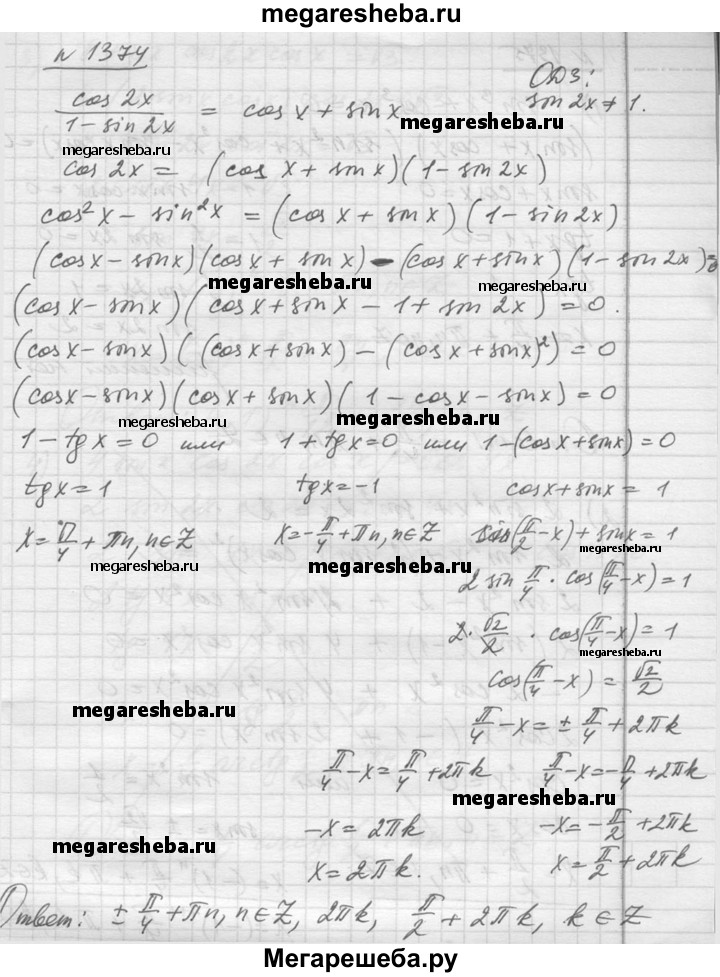 megaresheba.ru
N 1374
ОДЗ:
cos 2x / (1 - sin 2x) = cos x + sin x
sin 2x ≠ 1.
megaresheba.ru
megaresheba.ru
cos 2x = (cos x + sin x)(1 - sin 2x)
cos²x - sin²x = (cos x + sin x)(1 - sin 2x)
(cos x - sin x)(cos x + sin x) - (cos x + sin x)(1 - sin 2x) = 0
megaresheba.ru megaresheba.ru
(cos x - sin x)(cos x + sin x - 1 + sin 2x) = 0.
(cos x - sin x)((cos x + sin x) - (cos x + sin x)²) = 0
(cos x - sin x)(cos x + sin x)(1 - cos x - sin x) = 0
megaresheba.ru megaresheba.ru
1 - tg x = 0 или 1 + tg x = 0 или 1 - (cos x + sin x) = 0
tg x = 1 tg x = -1 cos x + sin x = 1
x = π/4 + πn, n ∈ Z x = -π/4 + πn, n ∈ Z sin(π/2 - x) + sin x = 1
megaresheba.ru megaresheba.ru megaresheba.ru
2 sin π/4 · cos(π/4 - x) = 1
2 · √2/2 · cos(π/4 - x) = 1
megaresheba.ru
cos(π/4 - x) = √2/2
megaresheba.ru
π/4 - x = ± π/4 + 2πk
π/4 - x = π/4 + 2πk π/4 - x = -π/4 + 2πk
megaresheba.ru
-x = 2πk -x = -π/2 + 2πk
megaresheba.ru
x = 2πk. x = π/2 + 2πk
Ответ: ± π/4 + πn, n ∈ Z, 2πk, π/2 + 2πk, k ∈ Z
Мегарешеба.ру